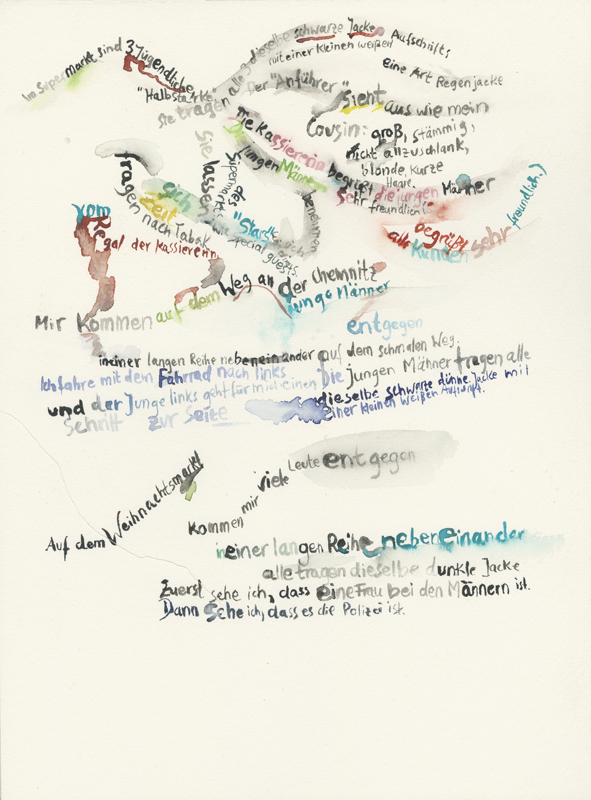 Im Supermarkt sind 3 Jugendliche,
"Halbstarke"
Sie tragen alle 3 dieselbe schwarze Jacke
mit einer kleinen weißen Aufschrift,
eine Art Regenjacke
Der "Anführer" sieht aus wie mein
Cousin: groß, stämmig,
nicht allzu schlank,
blonde, kurze
Haare.
Die Kassiererin begrüßt die jungen Männer
sehr freundlich
(
begrüßt
alle Kunden sehr
freundlich.)
Die jungen Männer
benehmen
sich
wie special guests.
Sie lassen
sich
Zeit
des
Supermarkts
"Stars"
fragen nach Tabak
vom
Regal der Kassiererin
Weg an der Chemnitz
Mir kommen auf dem
junge Männer
entgegen
in einer langen Reihe nebeneinander auf dem schmalen Weg.
Ich fahre mit dem Fahrrad nach links
Die jungen Männer tragen alle
und der Junge links geht für mich einen
dieselbe schwarze dünne Jacke mit
Schritt zur Seite
einer kleinen weißen Aufschrift.
Auf dem Weihnachtsmarkt
kommen mir viele Leute entgegen
in einer langen Reihe nebeneinander
alle tragen dieselbe dunkle Jacke
Zuerst sehe ich, dass eine Frau bei den Männern ist.
Dann sehe ich, dass es die Polizei ist.